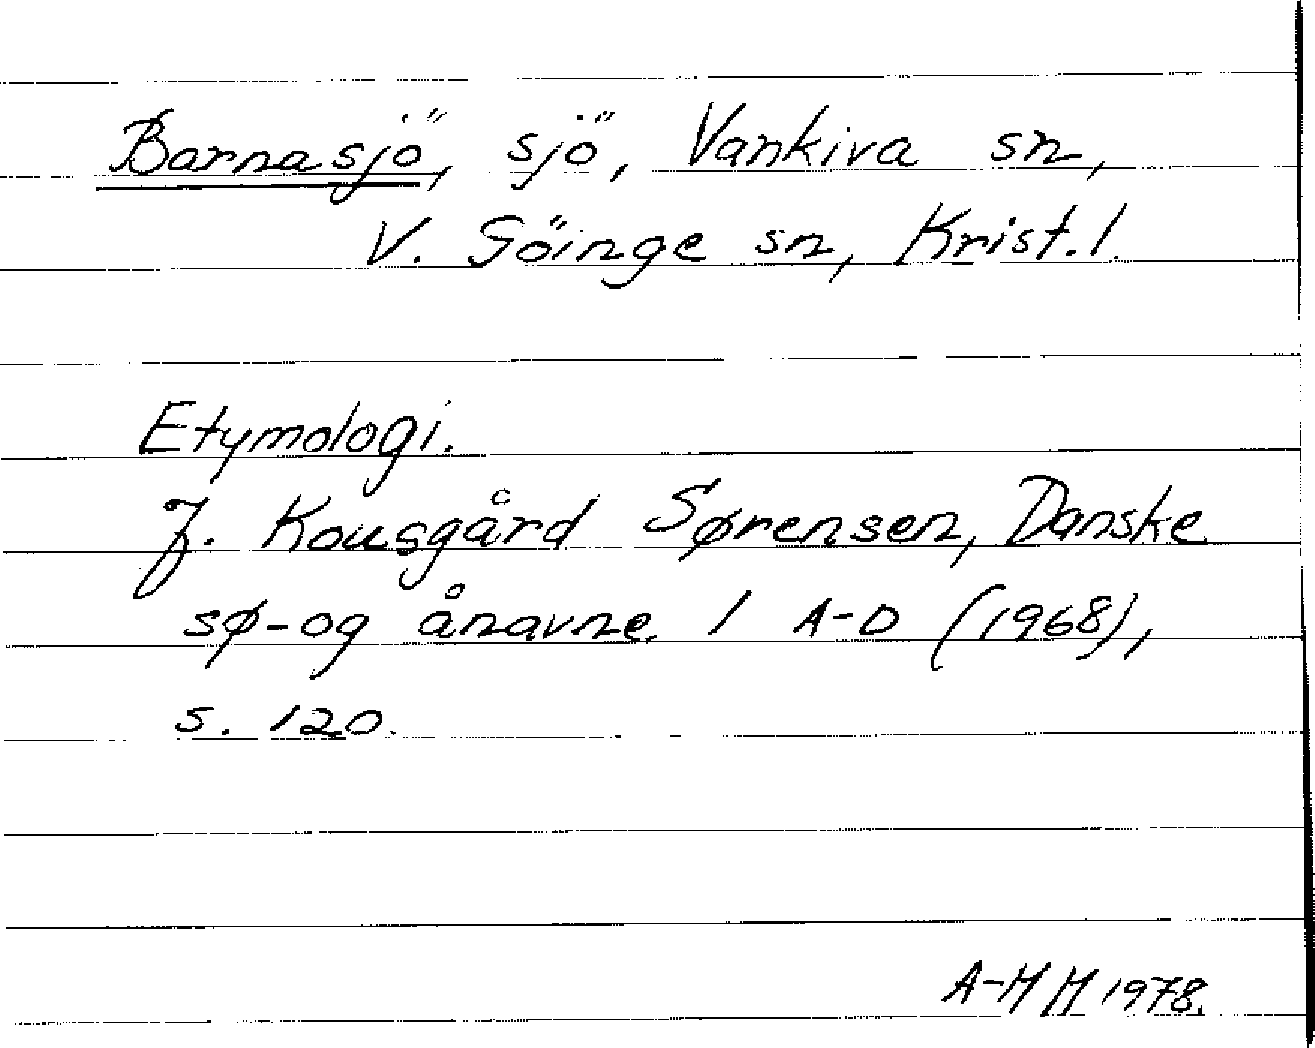 Barnasjö, sjö, Vankiva sn,
V. Göinge sn, Krist. l.
Etymologi.
J. Kousgård Sørensen, Danske
sø- og ånavne 1 A-D (1968),
s. 120.
A-MH 1978.